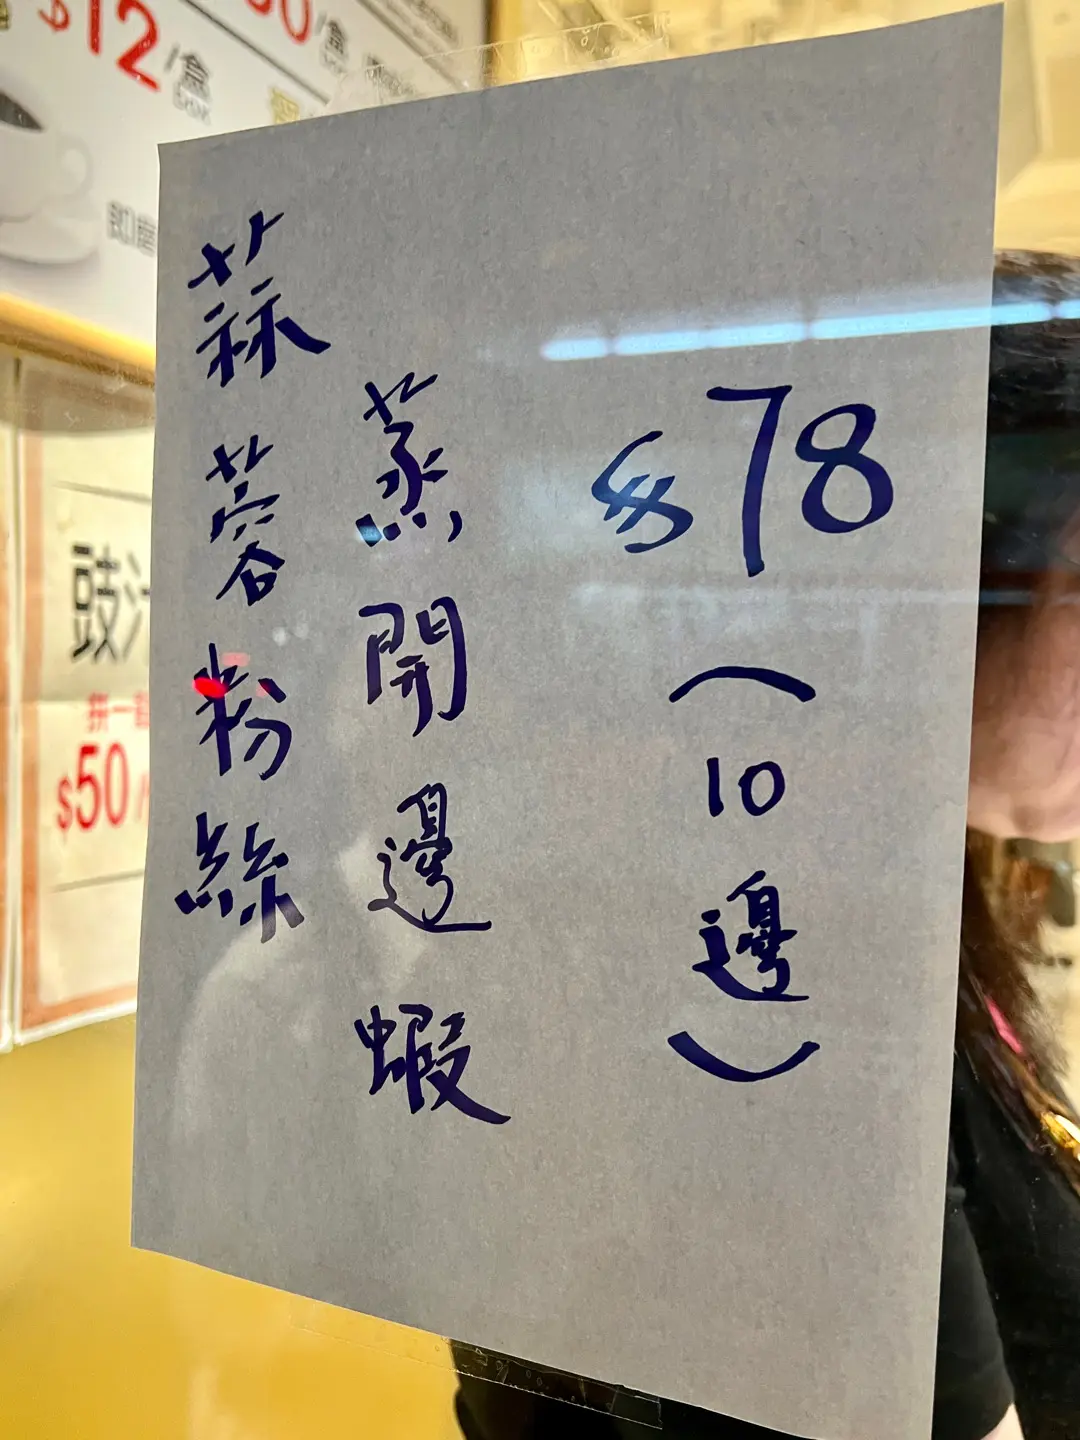 $12/盒
0/盒
即磨
豉汁
拼一款
$50/
蒜蓉粉絲
蒸開邊蝦
$78
(10邊)